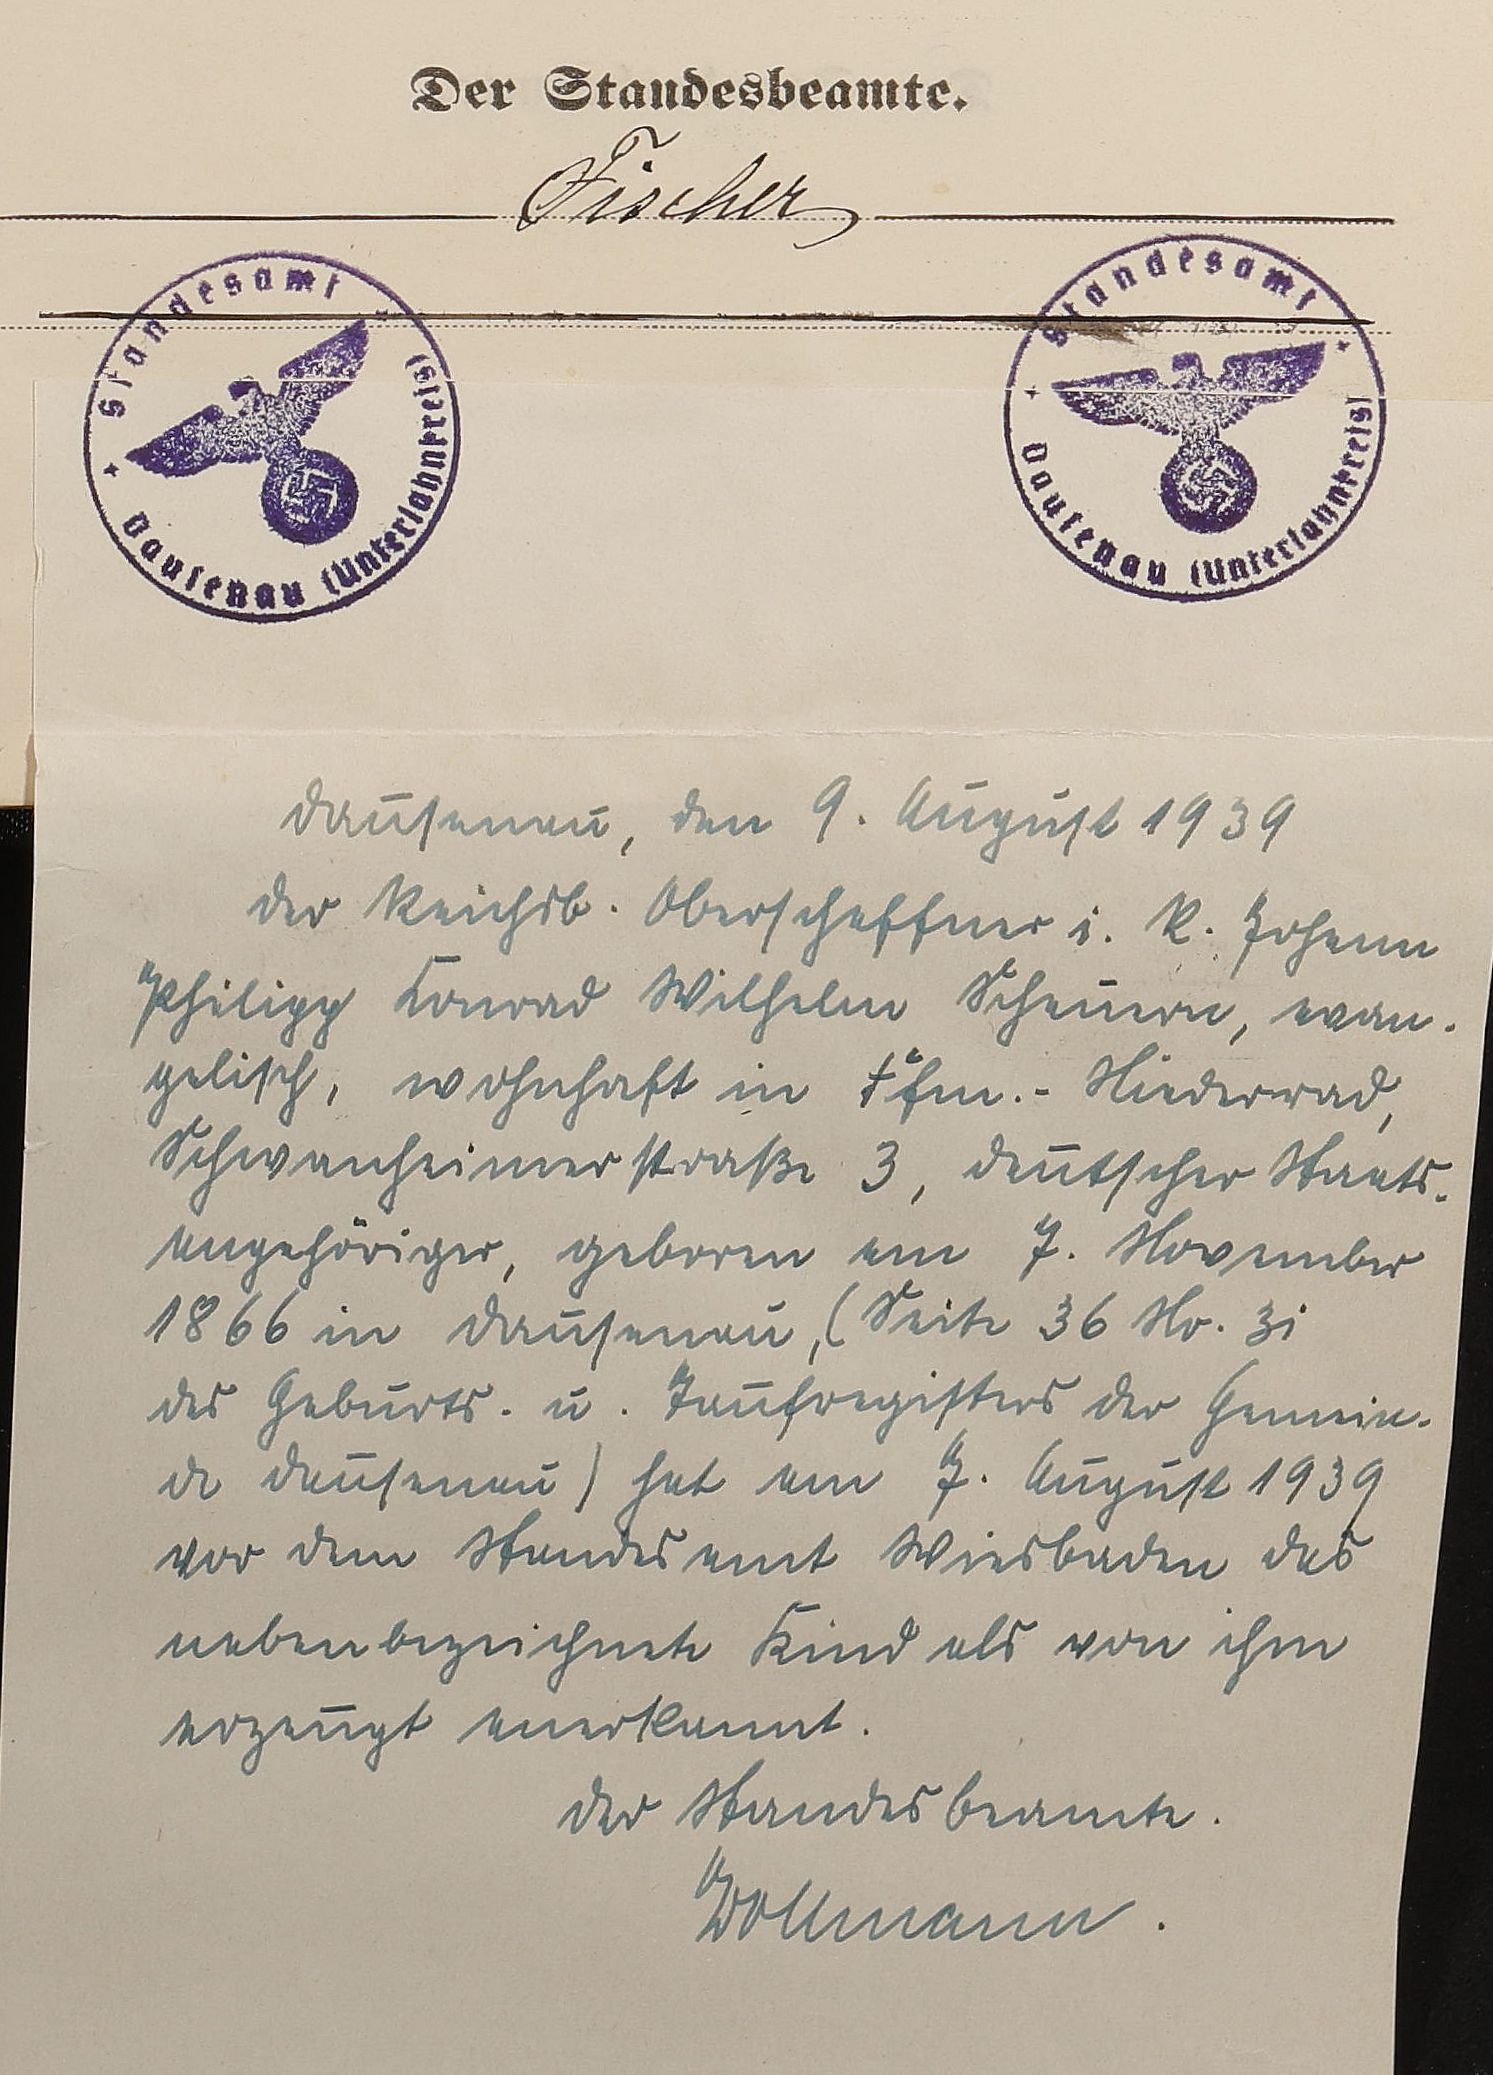 Der Standesbeamte.
Fischer
Standesamt
Dausenau (Unterlahnkreis)
Standesamt
Dausenau (Unterlahnkreis)
Dausenau, den 9. August 1939
Der Reichsb. Oberschaffner i. R. Johann
Philipp Konrad Wilhelm Scheuern, evan-
gelisch, wohnhaft in Ffm.- Niederrad,
Schwanheimerstraße 3, deutscher Staats-
angehöriger, geboren am 7. November
1866 in Dausenau, (Seite 36 No. 31
des Geburts- u. Taufregisters der Gemein-
de Dausenau) hat am 7. August 1939
vor dem Standesamt Wiesbaden das
nebenbezeichnete Kind als von ihm
erzeugt anerkannt.
Der Standesbeamte.
Wollmann.